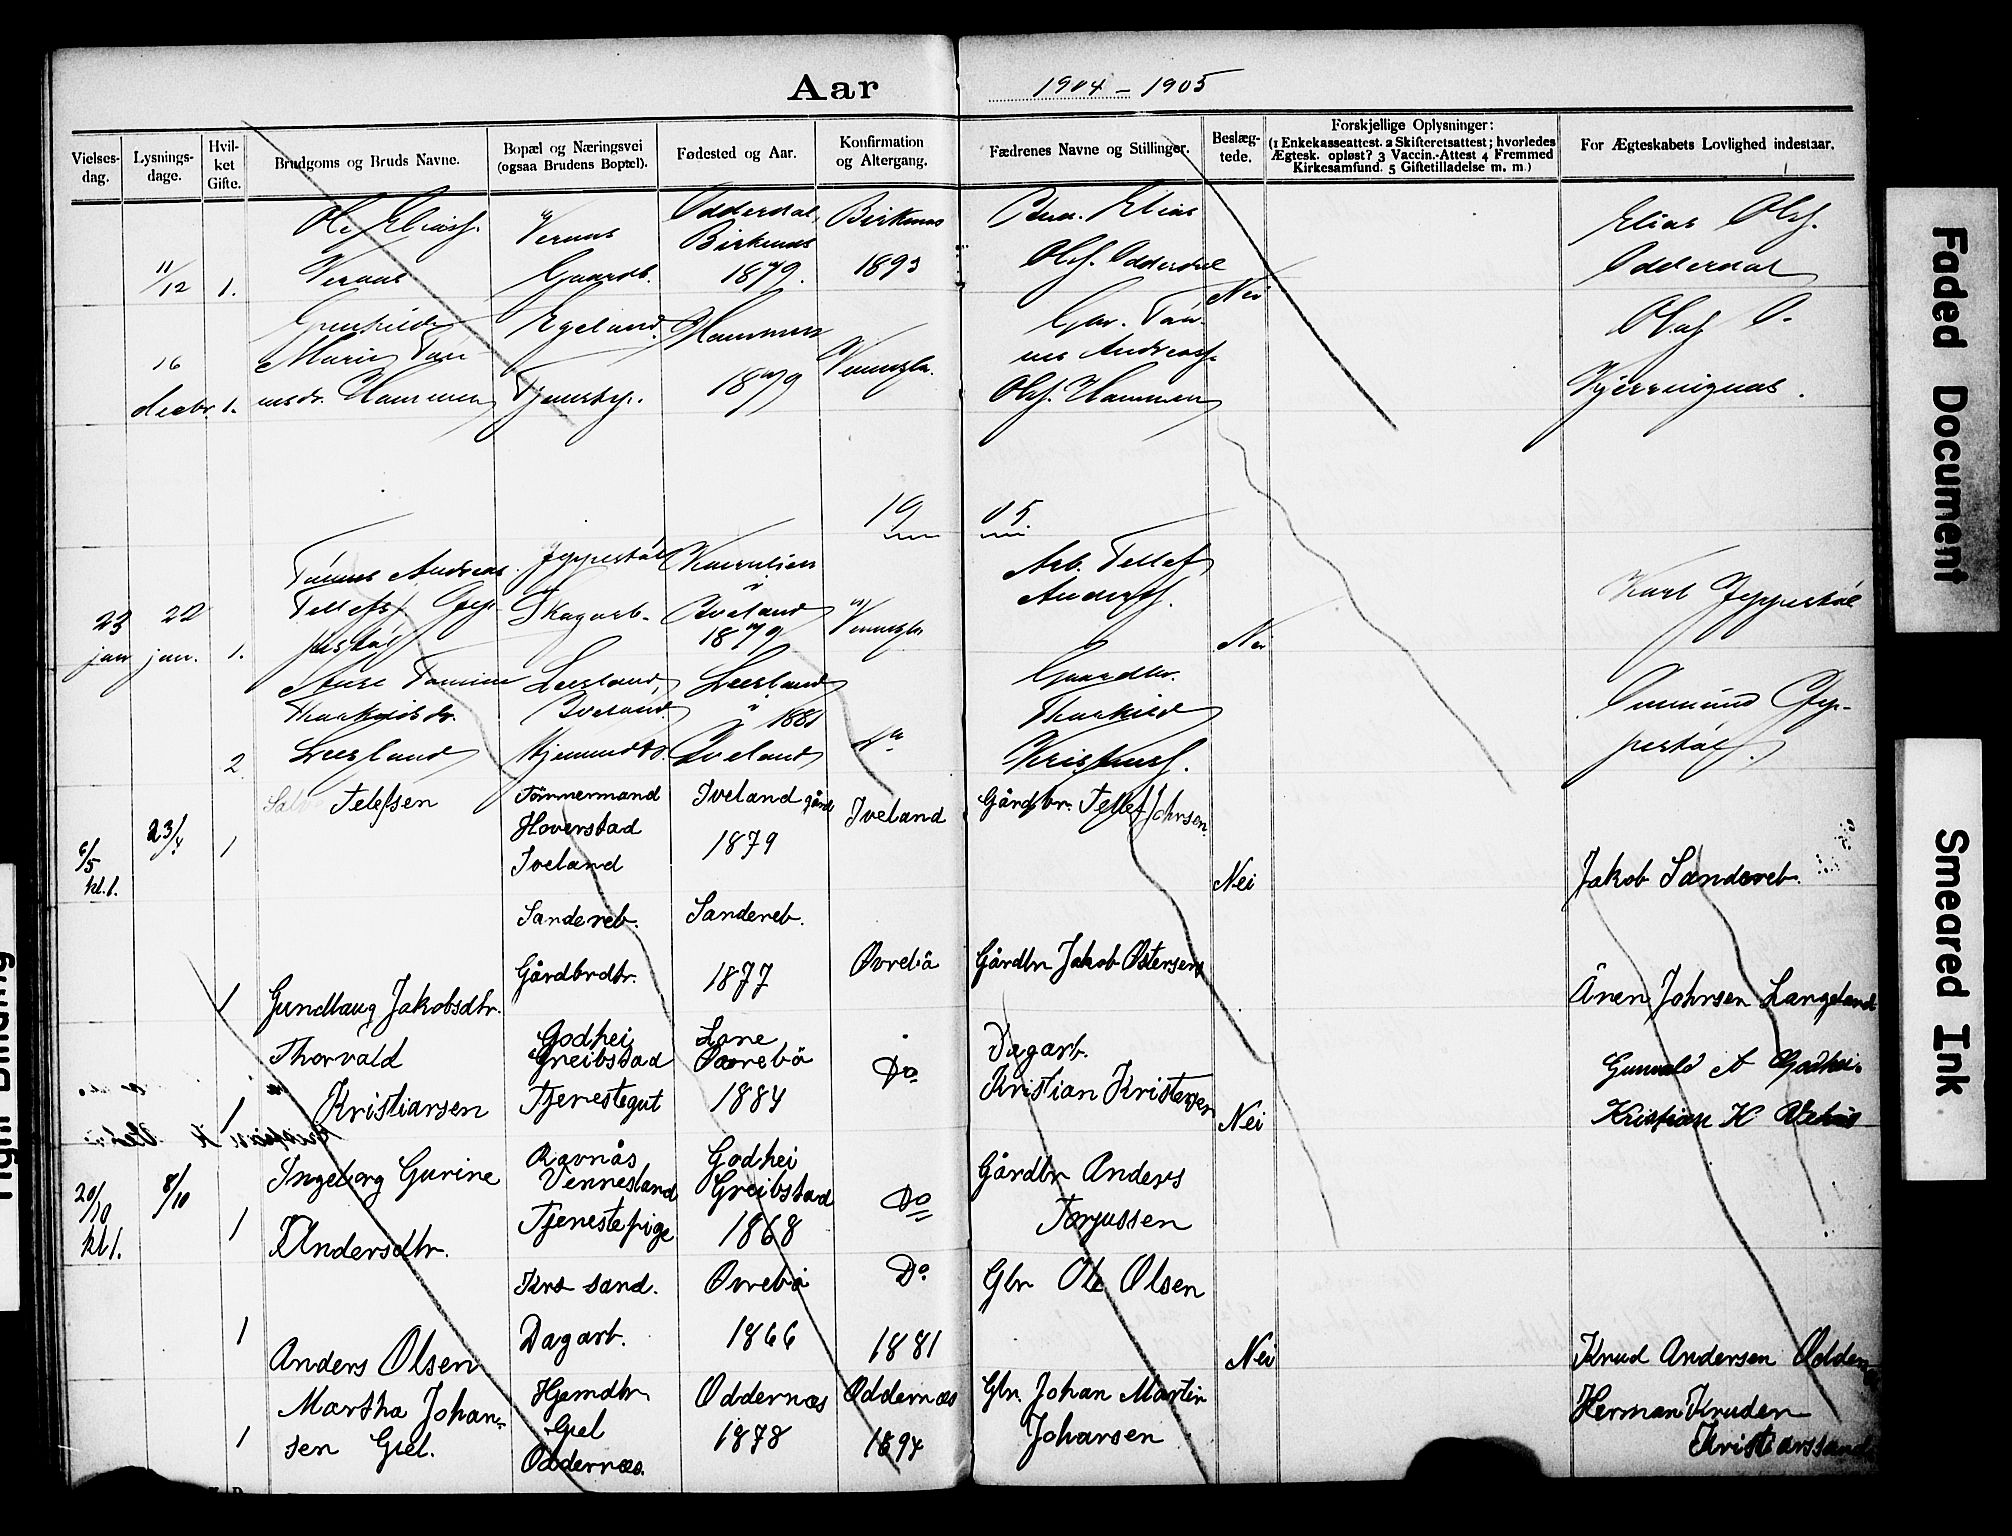 Aar 1904 - 1905
Vielses-
dag.
Lysnings-
dage.
Hvil-
ket
Gifte.
Brudgoms og Bruds Navne.
Bopæl og Næringsvei
(ogsaa Brudens Bopæl).
Fødested og Aar.
Konfirmation
og Altergang.
Fædrenes Navne og Stillinger.
Beslæg-
tede.
Forskjellige Oplysninger:
(1 Enkekasseattest. 2 Skifteretsattest; hvorledes
Ægtesk. opløst? 3 Vaccin.-Attest 4 Fremmed
Kirkesamfund. 5 Giftetilladelse m. m.)
For Ægteskabets Lovlighed indestaar.
11/12
1.
Ole Eliass.
Veraas
Veraas
Gaardb.
Odderdal,
Birkenes
1879.
Birkenes
1893
Elias
Ols. Odderdal
Nei
Elias Ols.
Odderdal
16
decbr.
1.
Gunhilde
Marie Tom-
Hammen
Egeland
Tjenstp.
Hammen
1879
Vennesla.
Andreas
Ols. Hammen
Olaf O.
19 05
23
jan
22
jan.
1.
Andreas
Tellefs.
Jeppestøl
Skogarb.
Iveland
1879
Vennesla
Arb. Tellef
Anders.
Nei
Karl Jeppestøl
2
Leesland
Leesland,
Iveland.
Leesland
i 1881
Iveland
Do
Gaardbr.
Kristens.
6/5
kl. 1.
23/4
1
Telefsen
Tömmermand
Hoverstad
Iveland
Iveland gård
1879
Iveland
Gårdbr. Tellef Johnsen.
Nei
Jakob Sandereb.
1
Gundlaug Jakobsdtr.
Sandereb.
Gårdbrdtr.
Sandereb.
1877
Øvrebö
Gårdbr Jakob Østensen
Ånen Johnsen Langeland
1
Thorvald
Kristiansen
Godhei
Greibstad
Tjenestegut
Lone
Øvrebö
1884
Do
Dagarb.
Kristian Kristensen
Nei
Gunvald A Godhei.
Kristian K
20/10
kl 1.
8/10
1
Ingeborg Gurine
Andersdtr.
Ravnås
Vennesland
Tjenestepige
Godhei
Greibstad
1868
Do
Gårdbr Anders
Torjussen
1
Anders Olsen
Krs sand.
Dagarb.
Øvrebö
1866
Do
1881
Gbr Ole Olsen
Nei
Knud Andersen
1
Martha Johan-
sen Giel.
Hjemdtr
Giel
Oddernæs.
Oddernæs
1878
Oddernæs
1894
Gbr. Johan Martin
Johansen
Herman Knuden
Kristianssand
Faded Document
Smeared Ink
Tight Binding